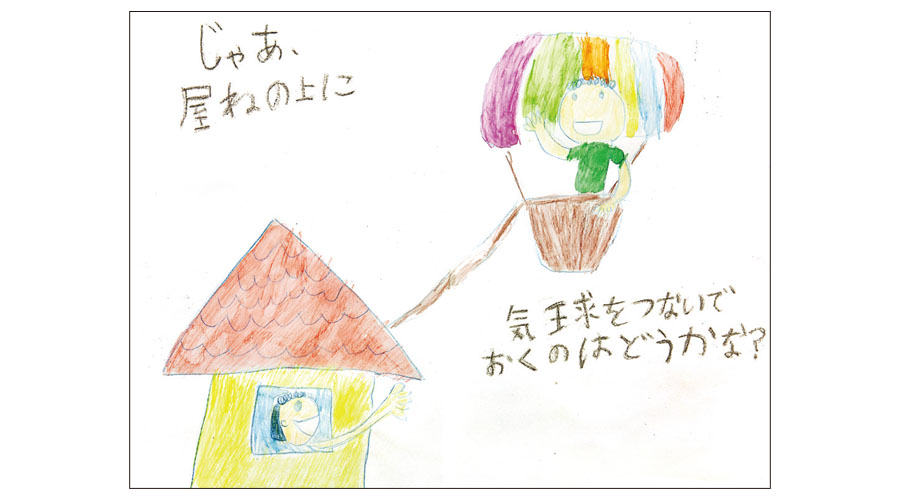 じゃあ、
屋ねの上に
気球をつないで
おくのはどうかな?